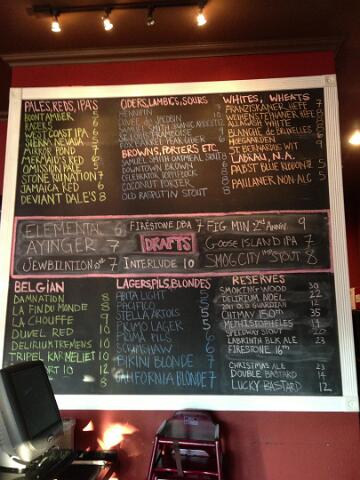 PALES, REDS, IPA'S
BOONT AMBER 5
RACER 5 6
WEST COAST IPA 6
SIERRA NEVADA 5
MIRROR POND 7
MERMAID'S RED 6
OMMISION PALE 5
STONE RUINATION 7
JAMAICA RED 6
DEVIANT DALE'S 8
CIDERS, LAMBICS, SOURS
HENNIPIN
CUVEE de JACOBIN 10
SAMUEL SMITH ORGANIC
FRAMBOISE
BROWNS, PORTERS, ETC.
SAMUEL SMITH OATMEAL STOUT 8
DOWNTOWN BROWN
COCONUT PORTER
OLD RASPUTIN STOUT
WHITES, WHEATS
FRANZISKANER HEFF 7
WEIHENSTEPHANER HEF 8
ALLAGASH WHITE
BLANCHE de BRUXELLES
HOEGAARDEN
ST BERNARDUS WIT
LAGER, N.A.
PABST BLUE RIBBON
PAULANER NON ALC 5
ELEMENTAL 6
AYINGER 7
JEWBILATION 7
FIRESTONE DBA 7
DRAFTS
INTERLUDE 10
FIG MTN 2nd ANNIV 9
GOOSE ISLAND IPA 7
SMOG CITY STOUT 8
BELGIAN
DAMNATION 8
LA FIN DU MONDE 8
LA CHOUFFE 9
DUVEL RED 10
DELIRIUM TREMENS 10
TRIPEL KARMELIET 10
12
LAGERS, PILS, BLONDES
ABITA LIGHT
PACIFICO 5
STELLA ARTOIS 5
PRIMO LAGER 5
PRIMA PILS 6
SCRIMSHAW 6
BIKINI BLONDE 7
CALIFORNIA BLONDE 7
RESERVES
SMOKING WOOD 30
DELIRIUM NOEL 22
OLD GUARDIAN
CHIMAY 150th 35
MEPHISTOPHELES
RED WAY STOUT 20
LABRINTH BLK ALE 23
FIRESTONE 16th
CHRISTMAS ALE 23
DOUBLE BASTARD 14
LUCKY BASTARD 12